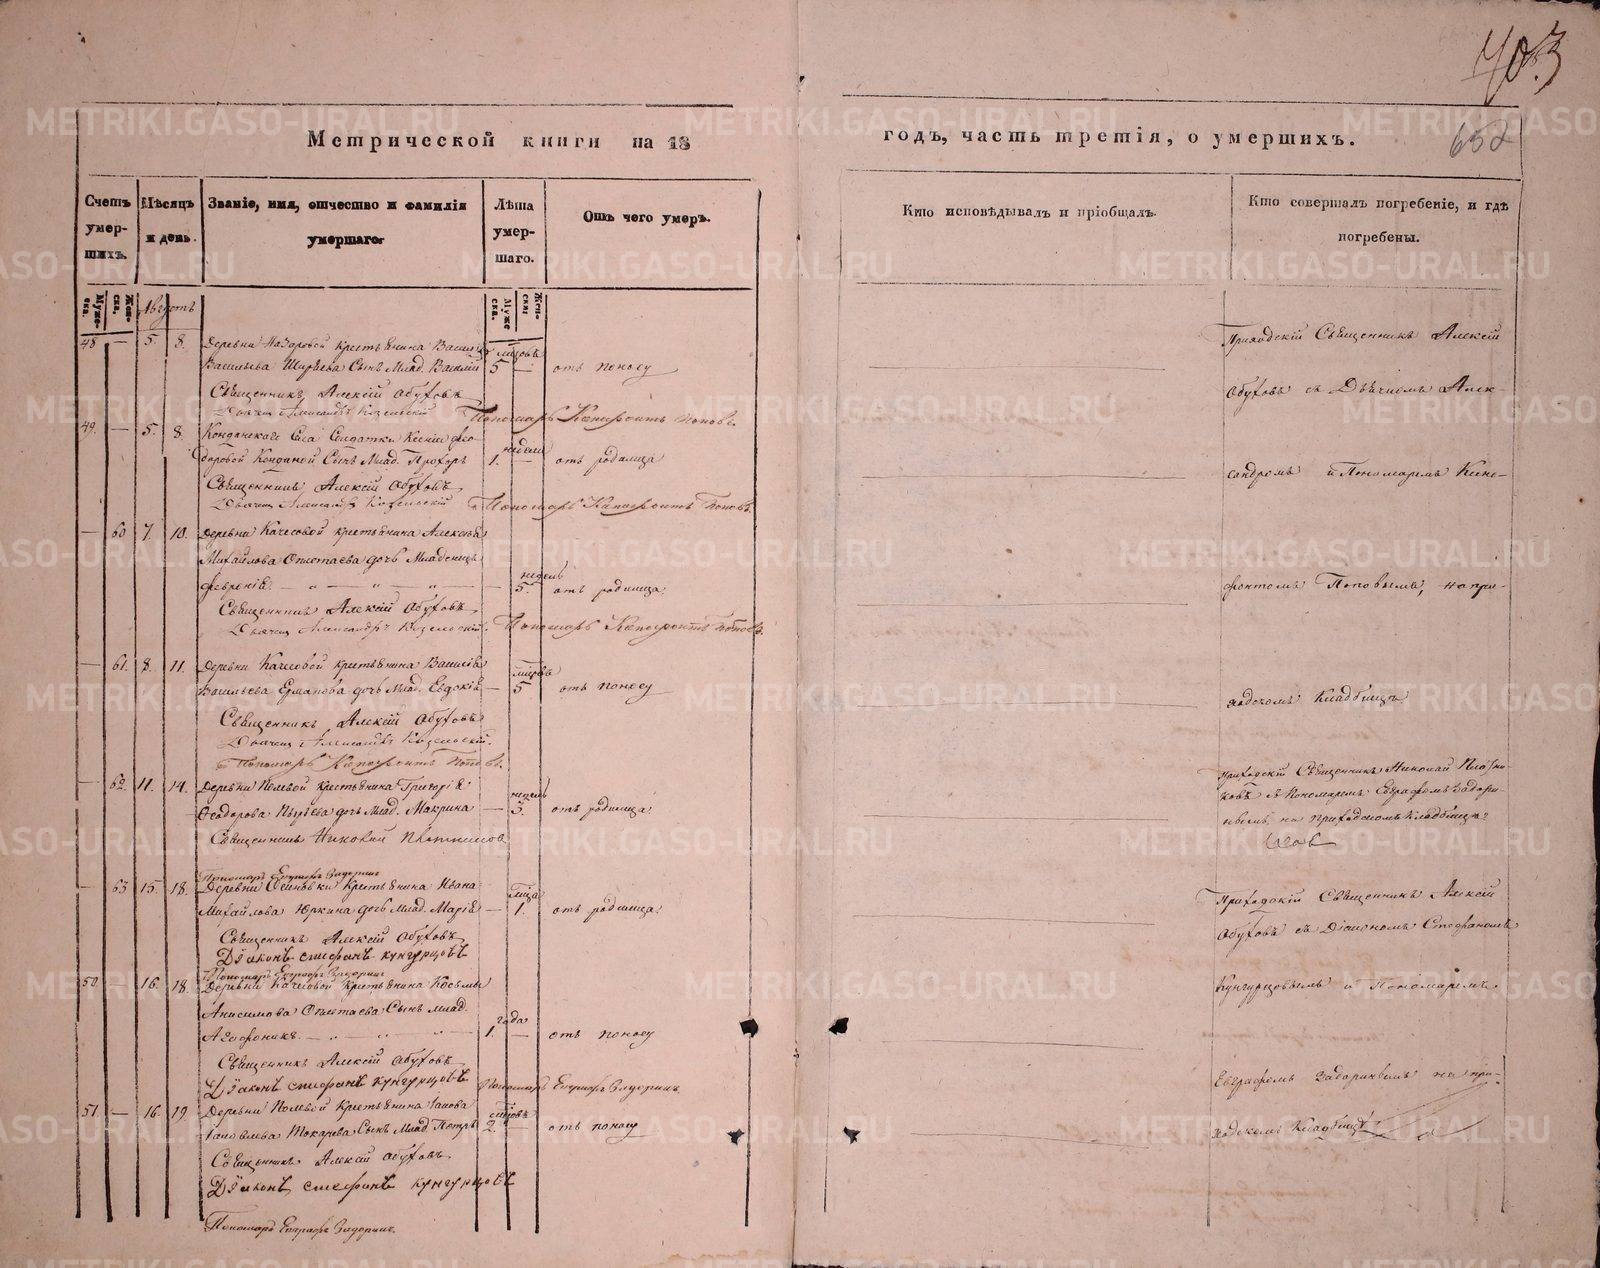 703
652
Метрической книги на 18
годъ, часть третія, о умершихъ.
Счетъ умер-шихъ.
Мѣсяцъ и день.
Званіе, имя, отчество и фамилія умершаго.
Лѣта умер-шаго.
Отъ чего умеръ.
Кто исповѣдывалъ и пріобщалъ.
Кто совершалъ погребеніе, и гдѣ погребены.
Муже-ска.
Жен-ска.
Августъ
Муже ска.
Жен-ска:
48 — 5. 8. Деревни Назаровой крестьянина Василія
Васильева Ширяева Сынъ Млад. Василій 5 — отъ поносу
Священникъ Алексій Обуховъ
Дьячекъ Александръ Козельскій Пономарь Ксенофонтъ Поповъ.
49. — 5. 8. Села Солдатки Ксеніи Ѳео-
доровой Сынъ Млад. Прохоръ недели 1. — отъ родимца
Священникъ Алексій Обуховъ
Дьячекъ Александръ Козельскій Пономарь Ксенофонтъ Поповъ.
— 60 7. 10. Деревни Качесовой крестьянина Алексѣя
Михайлова дочь Младенецъ
Февронія — недель 5. отъ родимца
Священникъ Алексій Обуховъ
Дьячекъ Александръ Козельскій. Пономарь Ксенофонтъ Поповъ.
— 61. 8. 11. Деревни Качесовой крестьянина Василія
Васильева Ермакова дочь Млад. Евдокія — 5 отъ поносу
Священникъ Алексій Обуховъ
Дьячекъ Александръ Козельскій.
Пономарь Ксенофонтъ Поповъ.
— 62. 11. 14. Деревни Полевой крестьянина Григорія
Ѳеодорова дочь Млад. Макрина — недель 3. отъ родимца
Священникъ Николай Плотниковъ
Пономарь Евграфъ Задоринъ
— 63 15. 18. Деревни Осиновки крестьянина Ивана
Михайлова Юркина дочь Млад. Марія — мѣсяца 1. отъ родимца.
Священникъ Алексій Обуховъ
Дїаконъ Стефанъ Кунгурцовъ
Пономарь Евграфъ Задоринъ
50 — 16. 18. Деревни Качесовой крестьянина Косьмы
Анисимова Сынъ млад.
— года 1. — отъ поносу
Священникъ Алексій Обуховъ
Дїаконъ Стефанъ Кунгурцовъ Пономарь Евграфъ Задоринъ.
51. — 16. 19 Деревни Полевой крестьянина Іакова
Токарева Сынъ Млад. Петръ 2. — отъ поносу
Священникъ Алексій Обуховъ
Дїаконъ Стефанъ Кунгурцовъ
Пономарь Евграфъ Задоринъ.
Приходскій Священникъ Алексій
Обуховъ съ Дьячкомъ Алек-
сандромъ и Пономаремъ Ксено-
фонтомъ Поповымъ, на при-
ходскомъ кладбищѣ
Приходскій Священникъ Николай Плотни-
ковъ съ Пономаремъ Евграфомъ Задори-
нымъ на приходскомъ кладбищѣ
Приходскій Священникъ Алексій
Обуховъ съ Діакономъ Стефаномъ
Кунгурцовымъ и Пономаремъ
Евграфомъ Задоринымъ на при-
ходскомъ кладбищѣ
METRIKI.GASO-URAL.RU